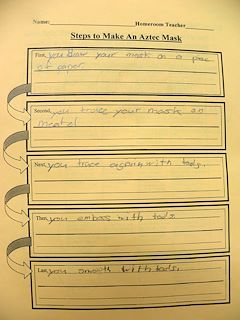 Name: Homeroom Teacher
Steps to Make An Aztec Mask
First, you draw your mask on a piece
of paper
Second, you trace your mask on
meatel
Next, you trace again with tools.
Then, you emboss with tools.
Last, you smooth with tools.